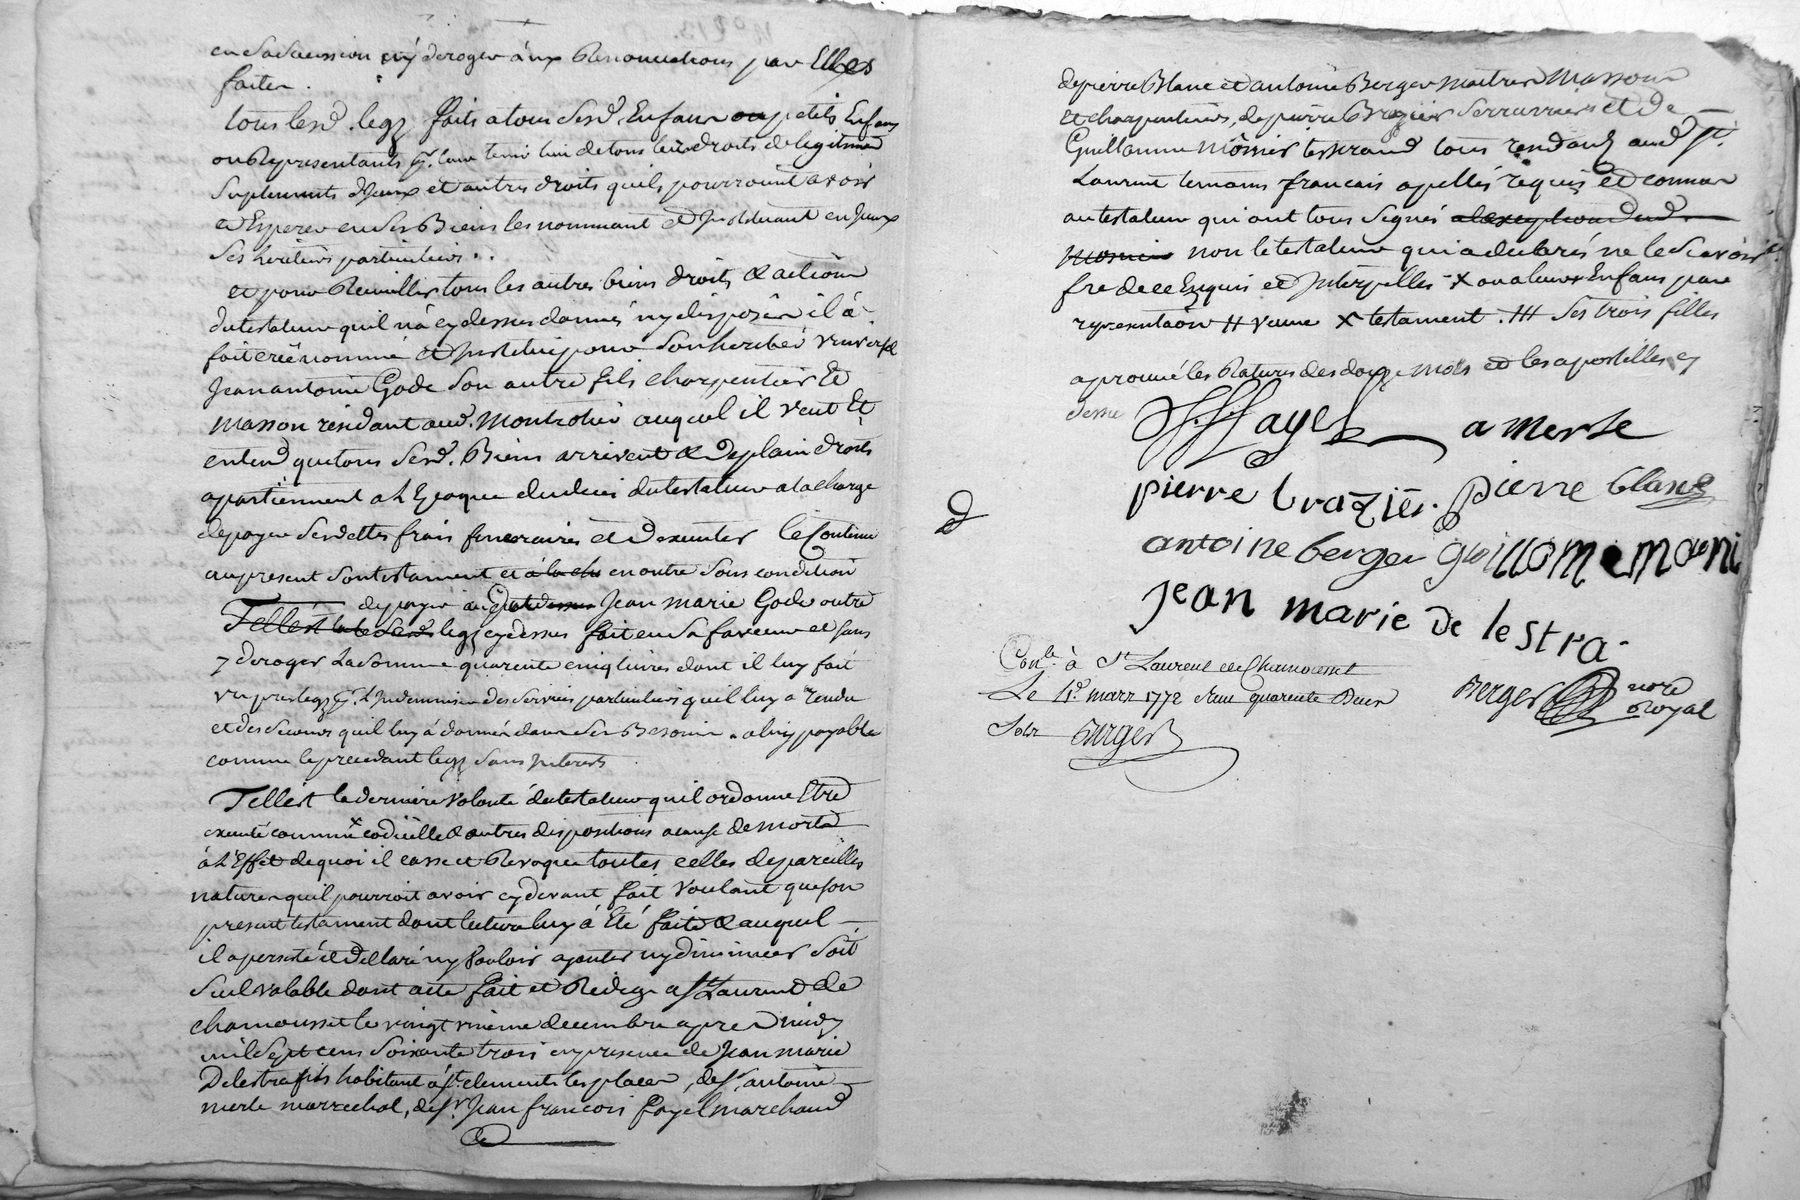 en sa sucession n'y deroger aux Renonciations par Elles
faites.
tous lesd. legz faits a tous sesd. Enfans ou petits Enfans
ou Representants pr. leur tenir lieu de tous leurs droits de legitime
suplements d'jceux et autres droits quils pourroient avoir
et Esperer en ses Biens les nommant et Jnstituant en Jceux
ses heritiers particuliers..
et pour Recueillir tous les autres biens droits & actions
du testateur quil n'a cy dessus donnés ny disposés il a
fait créé nommé et Jnstitué pour son heritier universel
Jean antoine Gode son autre fils charpentier Et
masson residant aud. Montrotier auquel il veut Et
entend que tous sesd. Biens arrivent & de plain droits
apartiennent a L'Epoque du deces du testateur a la charge
de payer ses dettes frais funeraires et d'executer le Contenu
au present son testament et a la en outre sous condition
de payer aud. Jean marie Gode outre
Telle est legz cy dessus fait en sa faveur et sans
y deroger La somme quarente cinq livres dont il luy fait
un prelegz pr. L'Jndemniser des services particuliers quil luy a rendu
et des secours quil luy a donné dans ses Besoins a luy payable
comme le precedant legz sans Jnterets
Telle est la derniere volonté du testateur quil ordonne Etre
executé comme x codicille & autres dispositions a cause de mort
a L'Effet de quoi il casse et Revoque toutes celles de pareilles
natures quil pourroit avoir cy devant fait Voulant que son
present testament dont lecture luy a Eté faite & auquel
il a persisté et declaré n'y vouloir ajouter ny diminuer soit
seul valable dont acte fait et Redigé a st Laurent de
chamousset le vingt unieme decembre apres midy
mil sept cens soixante trois en presence de Jean marie
Delestra fils habitant a st. clement les places, de sr. antoine
merle marrechal, de sr. Jean francois fayel marchand
de pierre Blanc et antoine Berger maitres Massons
et charpentiers, de pierre Brazier serrurrier et de
Guillaume Monier tisserand tous residants aud. st.
Laurent temoins francais apellés requis et connus
au testateur qui ont tous signés a l'exception dud.
Monier non le testateur qui a declarés ne le scavoir
fre de ce Enquis et Jnterpellés x ou a leurs Enfans par
representaõn # veuve x testament. ### ses trois filles
aprouvé les Ratures des douze mots et les apostilles cy
dessus
JF fayel a merle
pierre brazier. pierre blanc
antoine berger guillome moni
jean marie de lestra.
Conle. à St. Laurent de Chamousset
Le 1er. marz 1772 Reçu quarente Deux
Sols Berger
Berger nore
Royal